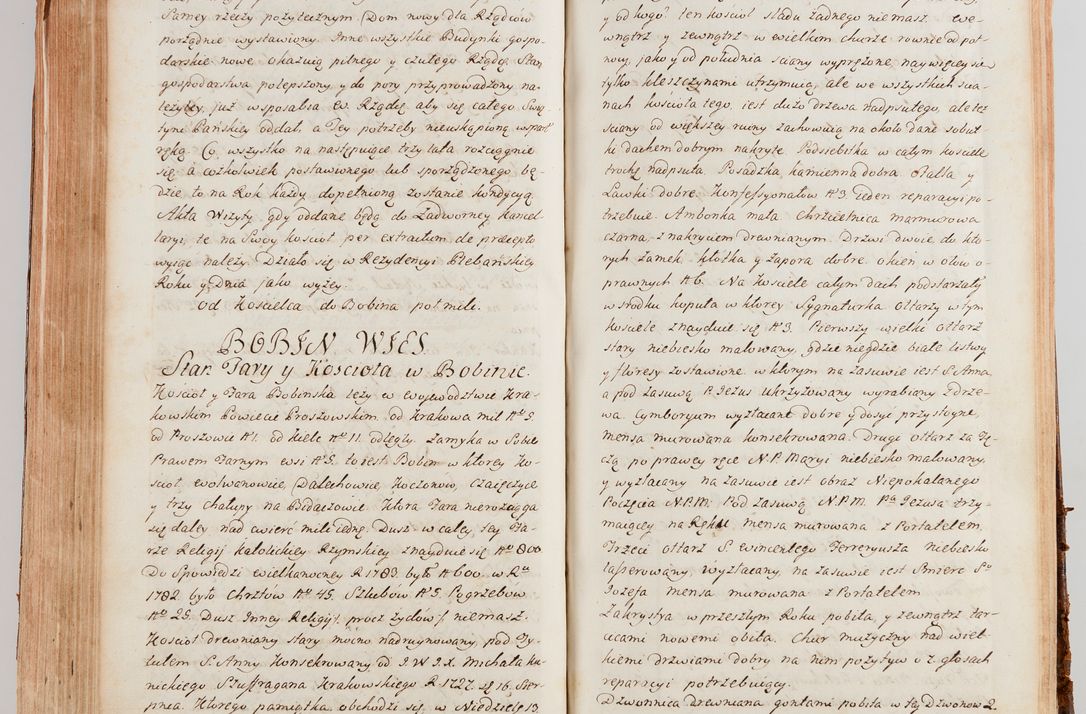 Samey rzeczy pozytecznym. Dom nowy dla Rządców
porządnie wystawiony. Inne wszystkie Budynki gospo-
darskie nowe okazuią pilnego y czułego Rządcę. Stan
gospodarstwa polepszony y do pory przyprowadzony na-
leżytey, już wsposabia W. Rządcę, aby się całego Swię-
tyni Pańskiey oddał, a Jey potrzeby nieuskąpioną wsparł
ręką. Co wszystko na następuiące trzy lata rozciągnie
się, a cożkolwiek postawionego lub sporządzonego bę-
dzie, to na Rok każdy dopełnioną zostanie kondycyą.
Akta Wizyty gdy oddane będą do Zadworney Kancel-
laryi, te na Swóy kosciół per extractum de præcepto
wyiąć należy. Działo się w Rezydencyi Plebańskiey
Roku y Dnia jako wyżey.
Od Koscielca do Bobina poł mile.
BOBIN WIES
Stan Fary y Kościoła w Bobinie.
Kosciół y Fara Bobinska leży w Wojewodztwie Kra-
kowskim Powiecie Proszowskim. od Krakowa mil Nº 5.
od Proszowic Nº 1. od Kielc Nº 11. odległy. Zamyka w Sobie
Prawem Farnym wsi Nº 5. to iest Bobin w ktorey Ko-
scioł, Wolwanowice, Dalechowice, Koczonow, Czaięczyce
y trzy chałupy na Bidaczowie. Ktora Fara nierozciąga
się daley nad cwierć mili iednę. Dusz w całey tey Fa-
rze Religij katolickiey Rzymskiey znayduie się Nº 800
Do Spowiedzi Wielkanocney R. 1783. było Nº 600. w Rº
1782. było Chrztow Nº 45. Szlubow Nº 5. Pogrzebow
Nº 25. Dusz Inney Religij /: procz żydów :/ niemasz.
Kościoł drewniany stary mocno nadruynowany, pod Ty-
tułem S. Anny Konsekrowany od J. W. J. X. Michała Ku-
nickiego Szuffragana Krakowskiego R. 1727. d. 16. Sier-
pnia. Ktorego pamiątka obchodzi się w Niedzielę 13.
y od kogo ten kościoł sladu żadnego niemasz. We-
wnątrz y zewnątrz w wielkim chorze rownie od pół-
nocy, jako y od południa sciany wyprężone, naywięcey się
tylko kleszczynami utrzymuią, ale we wszystkich scia-
nach kościoła tego, iest dużo drzewa nadpsutego, ale też
sciany od większey ruiny zachowuią na około dane sobut-
ki dachem dobrym nakryte. Podsiebitka w całym kościele
trochę nadpsuta. Posadzka kamienna dobra. Stalla y
Ławki dobre. Konfessyonałów Nº 3. Jeden reparacyi po-
trzebuie. Ambonka mała. Chrzcielnica marmurowa
czarna, z nakryciem drewnianym. Drzwi dwoie, do kto-
rych zamek, kłotka y zapora dobre. okien w ołow o-
prawnych Nº 6. Na Kościele całym Dach podstarzały
w srodku kopuła w ktorey Sygnaturka. ołtarzy w tym
kościele znayduie się Nº 3. Pierwszy wielki ołtarz
stary niebiesko malowany, gdzie niegdzie białe listwy
y floresy zostawione. w ktorym na zasuwie iest S. Anna
a pod zasuwą P. Jezus Ukrzyżowany wyrabiany Zdrze-
wa. Cymboryum wyzłacane dobre y dosyć przystoyne,
mensa murowana konsekrowana. Drugi ołtarz za Tę-
czą po prawey ręce N. P. Maryi niebiesko malowany,
y wyzłacany na zasuwie iest obraz Niepokalanego
Poczęcia N.P.M. Pod zasuwą N.P.M. Pª Jezusa trzy-
maiącey na Ręku, mensa murowana z Portatelem.
Trzeci ołtarz S. Wincentego Ferreryusza niebiesko
laserowany, wyzłacany, na zasuwie iest Smierć Sº
Jozefa mensa murowana z Portatelem.
Zakrystya w przeszłym Roku pobita, y zewnątrz tar-
cicami nowemi obita. Chor muzyczny nad wiel-
kiemi drzwiami dobry na nim pozytyw o 7. głosach
reparacyi potrzebuiący.
Dzwonnica drewniana gontami pobita w tey Dzwonow 2.